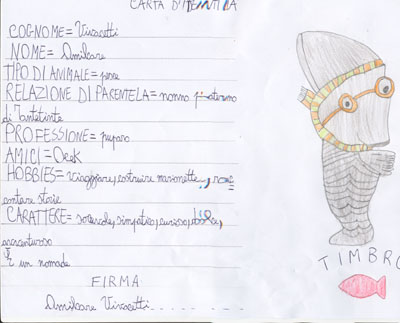 CARTA D'IDENTITÀ
COGNOME= Vivacetti
NOME= Amilcare
TIPO DI ANIMALE= pesce
RELAZIONE DI PARENTELA= nonno paterno
di
PROFESSIONE= puparo
AMICI=
HOBBIES= viaggiare, costruire marionette,
contare storie
CARATTERE= socievole, simpatico, curioso,
avventuroso
È un nomade
FIRMA
Amilcare Vivacetti
TIMBRO